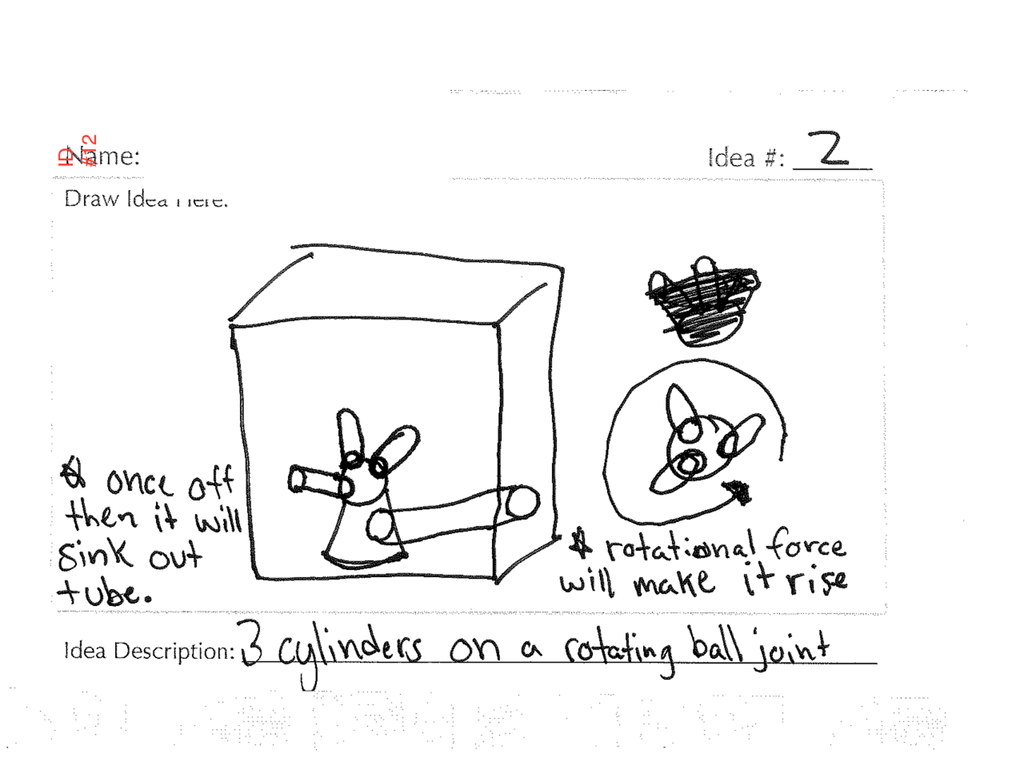 ID #12
Name:
Idea #: 2
Draw Idea Here:
* once off
then it will
sink out
tube.
* rotational force
will make it rise
Idea Description: 3 cylinders on a rotating ball joint